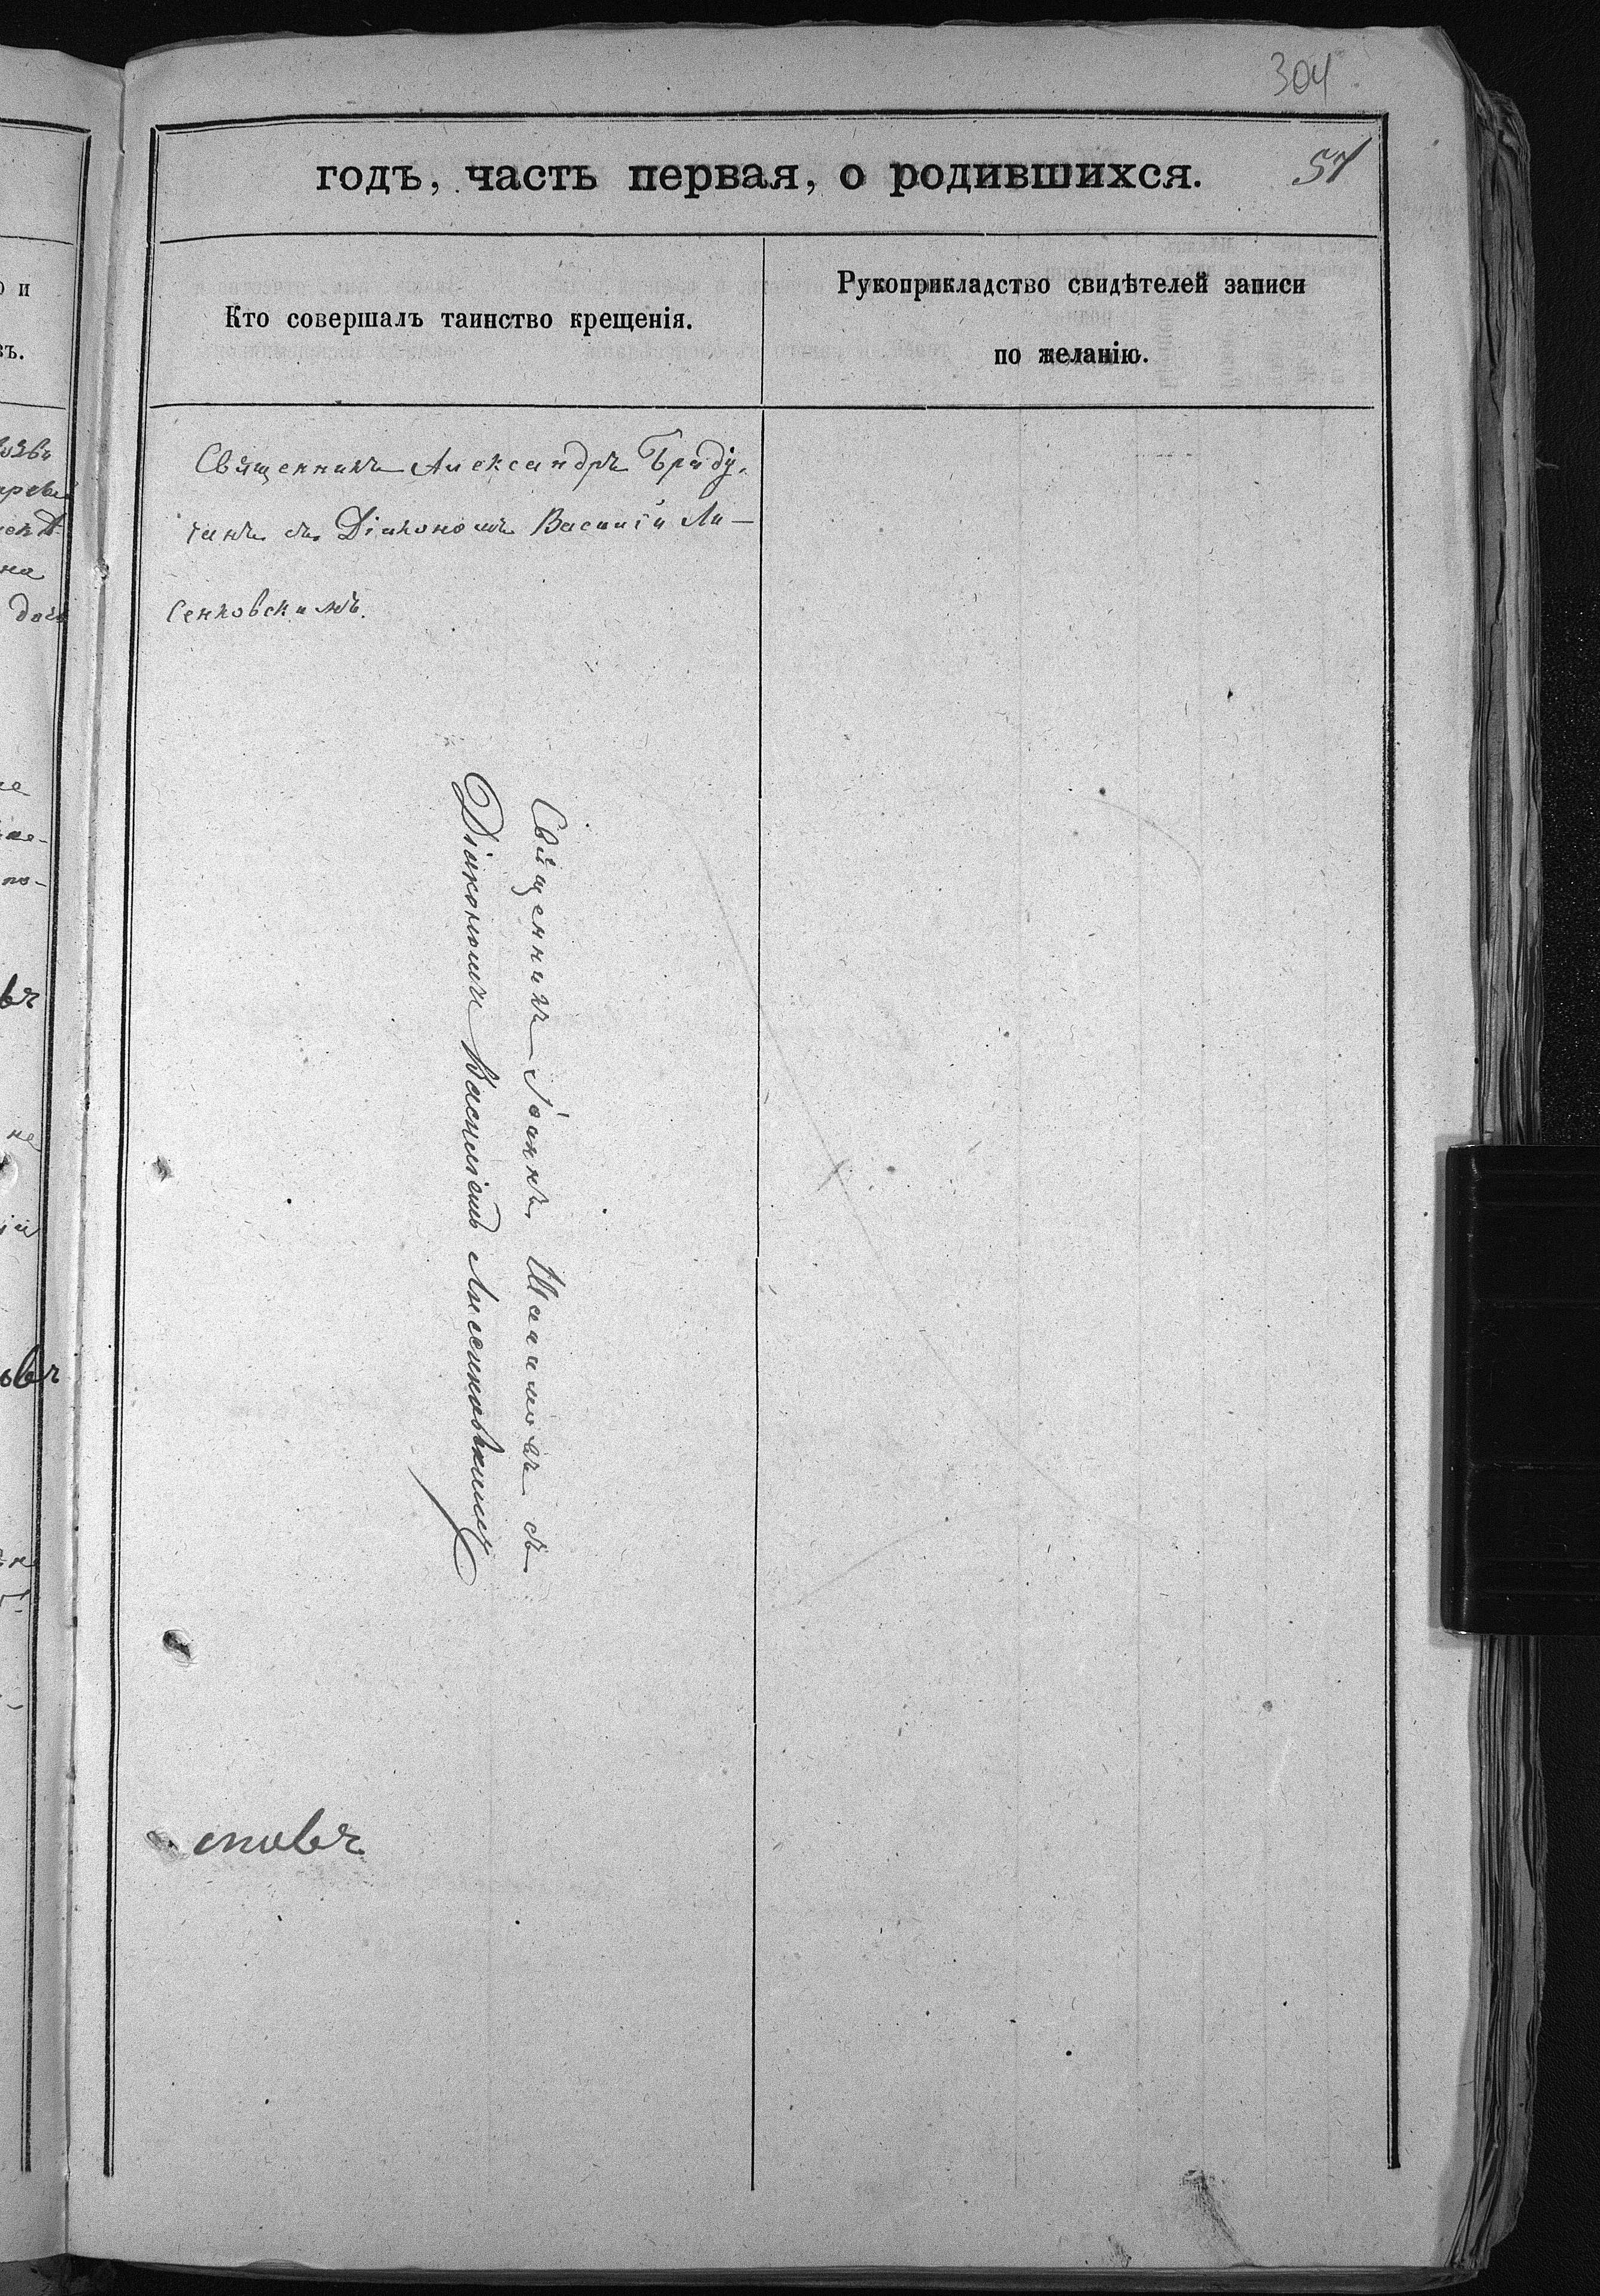 304
годъ, часть первая, о родившихся.
57
Кто совершалъ таинство крещенія.
Рукоприкладство свидѣтелей записи
по желанію.
Священникъ Александръ
съ Діакономъ Василій Ли-
сенковскимъ.
Священникъ Іоаннъ съ
Діакономъ Василіемъ Лисенковскимъ